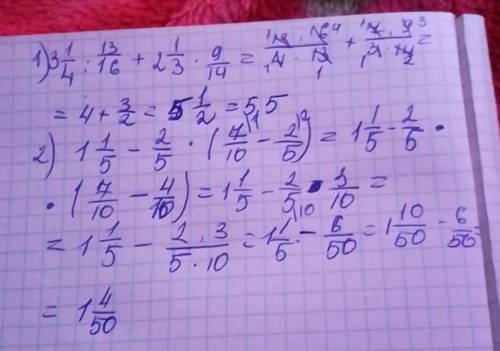 1) 3 1/4 : 13/16 + 2 1/3 · 9/14 = (13 · 16)/(4 · 13) + (7 · 9)/(3 · 14) =
= 4 + 3/2 = 5 1/2 = 5,5
2) 1 1/5 - 2/5 · (7/10 - 2/5) = 1 1/5 - 2/5 ·
· (7/10 - 4/10) = 1 1/5 - 2/5 · 3/10 =
= 1 1/5 - (2 · 3)/(5 · 10) = 1 1/5 - 6/50 = 1 10/50 - 6/50 =
= 1 4/50